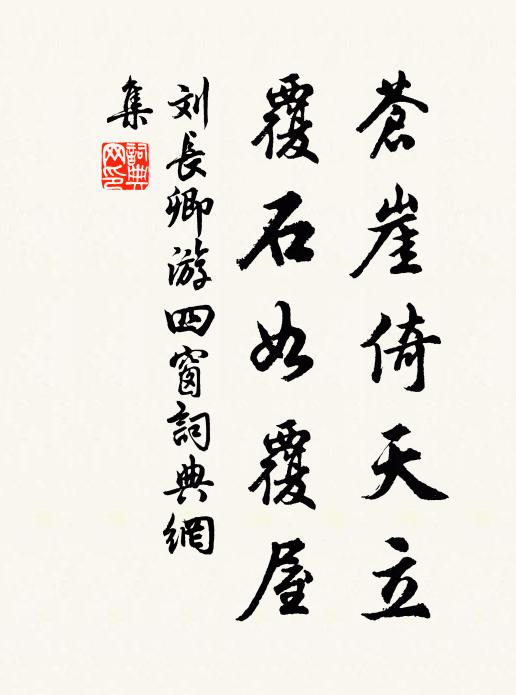 蒼崖倚天立
覆石如覆屋
刘長卿游四窗詞典網
集
詞典網印